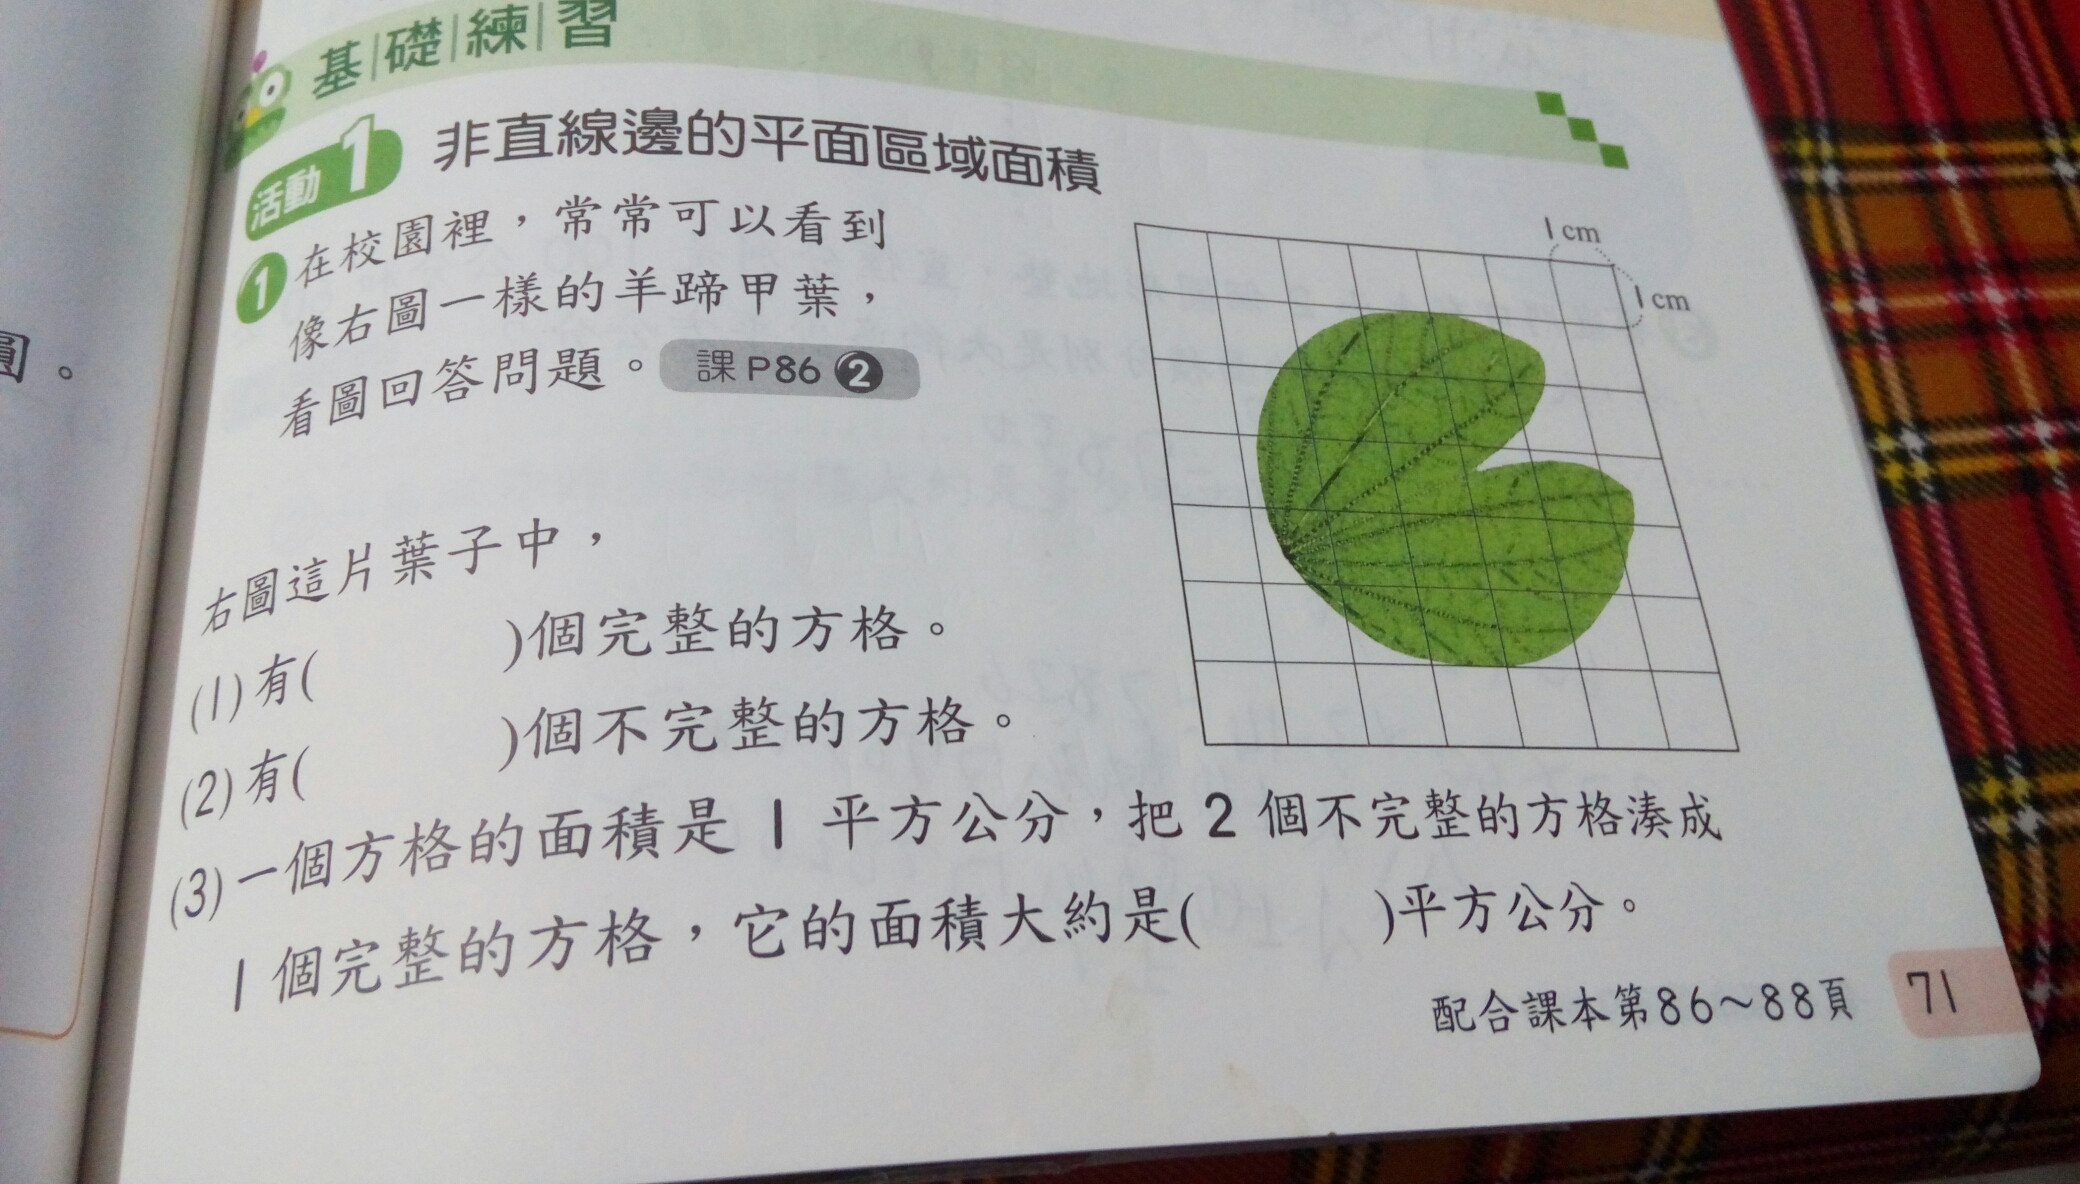 基礎練習
活動1 非直線邊的平面區域面積
1 在校園裡，常常可以看到
像右圖一樣的羊蹄甲葉，
看圖回答問題。 課P86 2
1 cm
1 cm
右圖這片葉子中，
(1)有( )個完整的方格。
(2)有( )個不完整的方格。
(3)一個方格的面積是 1 平方公分，把 2 個不完整的方格湊成
1 個完整的方格，它的面積大約是( )平方公分。
配合課本第86～88頁 71
圓。